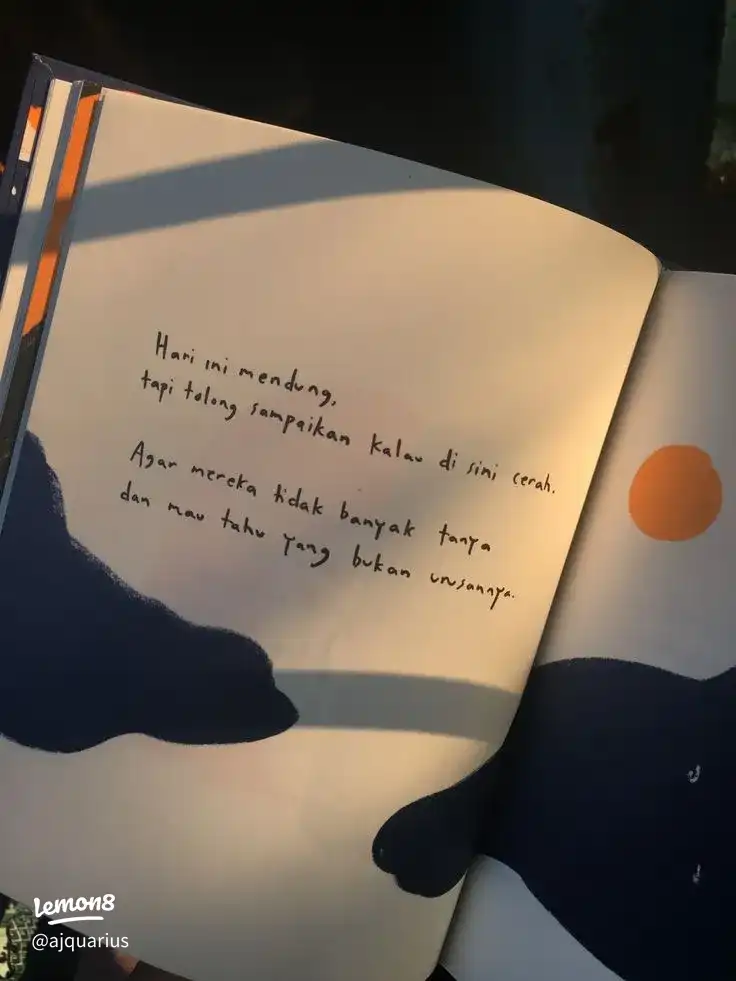 Hari ini mendung,
tapi tolong sampaikan kalau di sini cerah.
Agar mereka tidak banyak tanya
dan mau tahu yang bukan urusannya.
Lemon8
@ajquarius